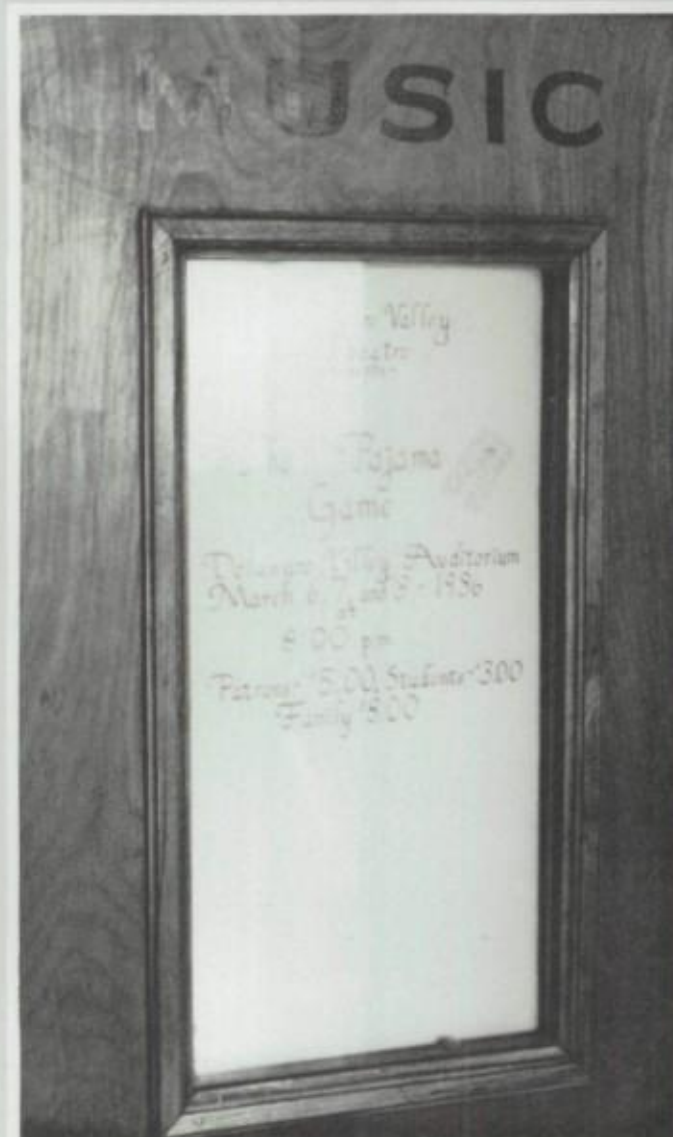 MUSIC
Valley
Pajama
Game
Delaware Valley Auditorium
March 6, 7, and 8 - 1986
at
8:00 p.m.
Patrons- $5.00, Students- $3.00
Family $8.00